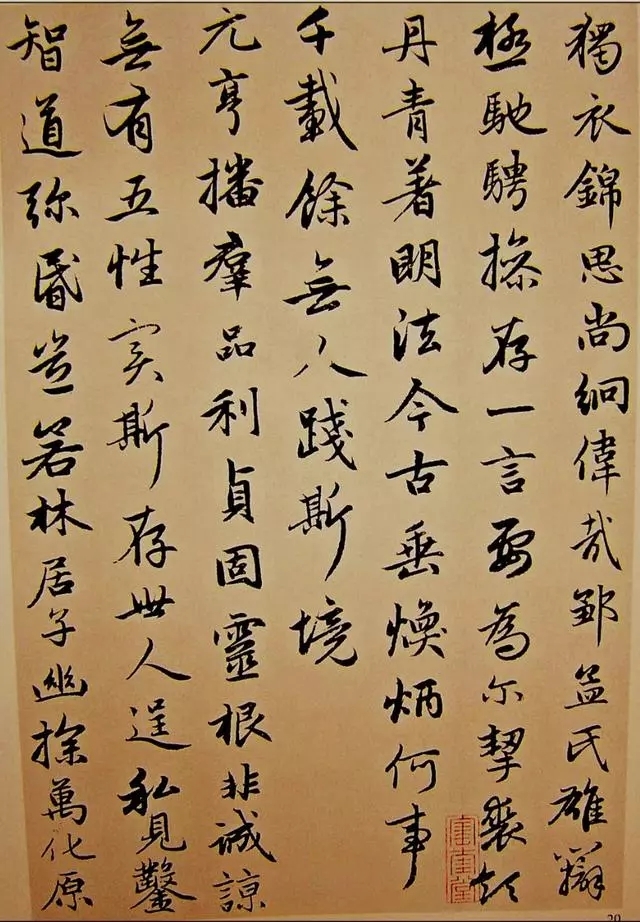 獨衣錦思尚絅偉哉鄒孟氏雄辯
極馳騁操存一言要為尔挈裘領
丹青著明法今古垂煥炳何事
千載餘無人踐斯境
元亨播羣品利貞固靈根非誠諒
無有五性实斯存世人逞私見鑿
智道弥昬豈若林居子幽探萬化原
20